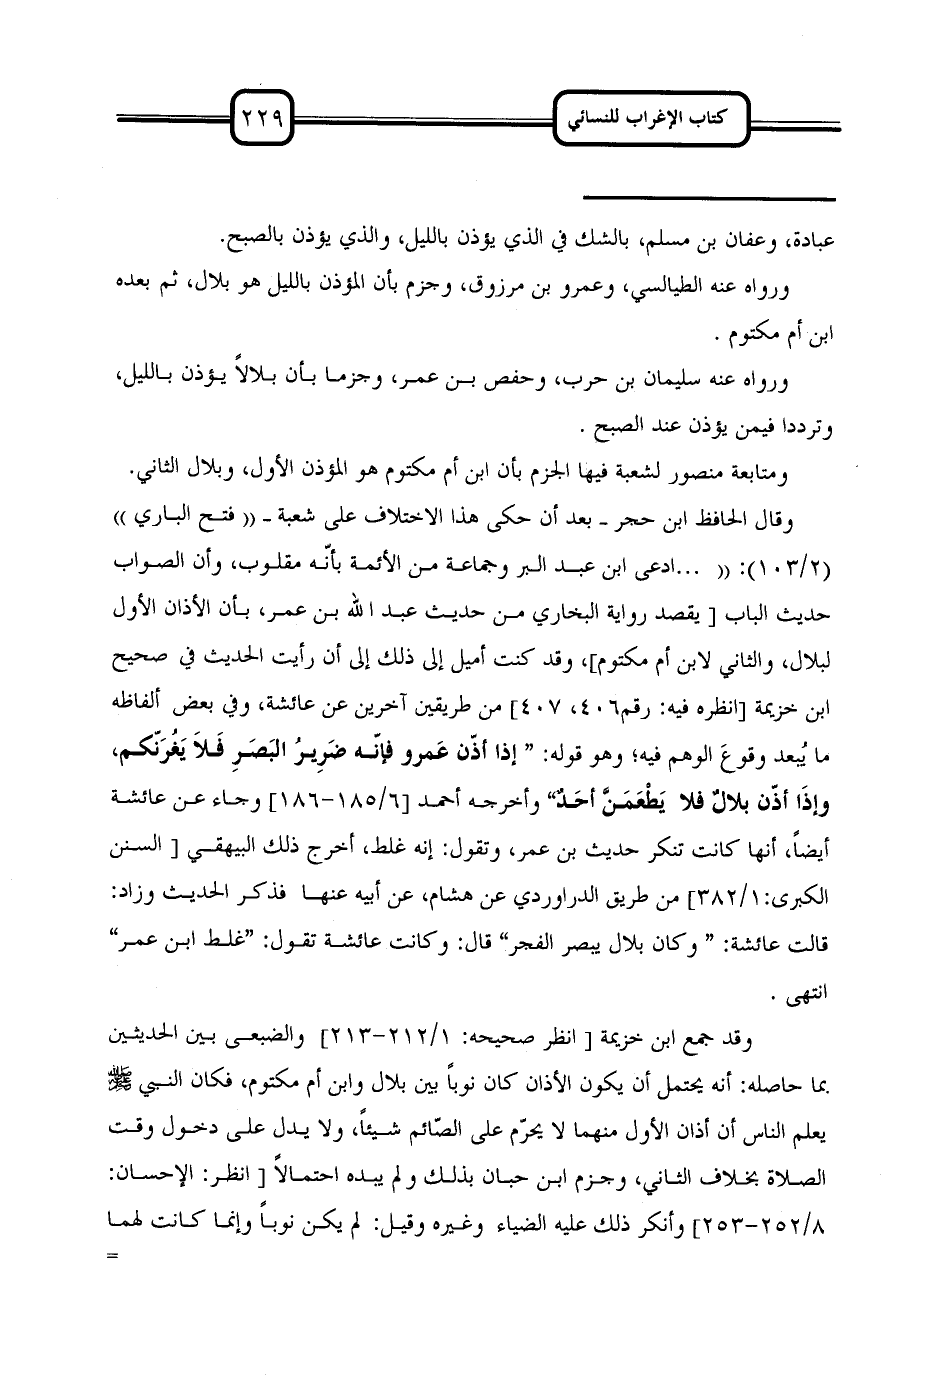 كتاب الإغراب للنسائي
٢٢٩
عبادة، وعفان بن مسلم، بالشك في الذي يؤذن بالليل، والذي يؤذن بالصبح.
ورواه عنه الطيالسي، وعمرو بن مرزوق، وجزم بأن المؤذن بالليل هو بلال، ثم بعده
ابن أم مكتوم .
ورواه عنه سليمان بن حرب، وحفص بن عمر، وجزما بأن بلالاً يؤذن بالليل،
وترددا فيمن يؤذن عند الصبح .
ومتابعة منصور لشعبة فيها الجزم بأن ابن أم مكتوم هو المؤذن الأول، وبلال الثاني.
وقال الحافظ ابن حجر ـ بعد أن حكى هذا الاختلاف على شعبة ـ (( فتح الباري ))
(١٠٣/٢): (( ...ادعى ابن عبد البر وجماعة من الأئمة بأنّه مقلوب، وأن الصواب
حديث الباب [ يقصد رواية البخاري من حديث عبد الله بن عمر، بأن الأذان الأول
لبلال، والثاني لابن أم مكتوم]، وقد كنت أميل إلى ذلك إلى أن رأيت الحديث في صحيح
ابن خزيمة [انظره فيه: رقم٤٠٦، ٤٠٧] من طريقين آخرين عن عائشة، وفي بعض ألفاظه
ما يُبعد وقوعَ الوهم فيه؛ وهو قوله: " إذا أذّن عمرو فإنّه ضَرِيرُ البَصَرِ فَلاَ يَغُرَنّكم،
وإذَا أذّن بلالٌ فلا يَطْعَمَنَّ أحَدٌ" وأخرجه أحمد [١٨٥/٦-١٨٦] وجاء عن عائشة
أيضاً، أنها كانت تنكر حديث بن عمر، وتقول: إنه غلط، أخرج ذلك البيهقي [ السنن
الكبرى:٣٨٢/١] من طريق الدراوردي عن هشام، عن أبيه عنها فذكر الحديث وزاد:
قالت عائشة: " وكان بلال يبصر الفجر" قال: وكانت عائشة تقول: "غلط ابن عمر"
انتهى .
وقد جمع ابن خزيمة [ انظر صحيحه: ٢١٢/١-٢١٣] والضبعى بين الحديثين
بما حاصله: أنه يحتمل أن يكون الأذان كان نوباً بين بلال وابن أم مكتوم، فكان النبي ﷺ
يعلم الناس أن أذان الأول منهما لا يحرّم على الصّائم شيئاً، ولا يدل على دخول وقت
الصلاة بخلاف الثاني، وجزم ابن حبان بذلك ولم يبده احتمالاً [ انظر: الإحسان:
٢٥٢/٨-٢٥٣] وأنكر ذلك عليه الضياء وغيره وقيل: لم يكن نوباً وإنما كانت لهما
=